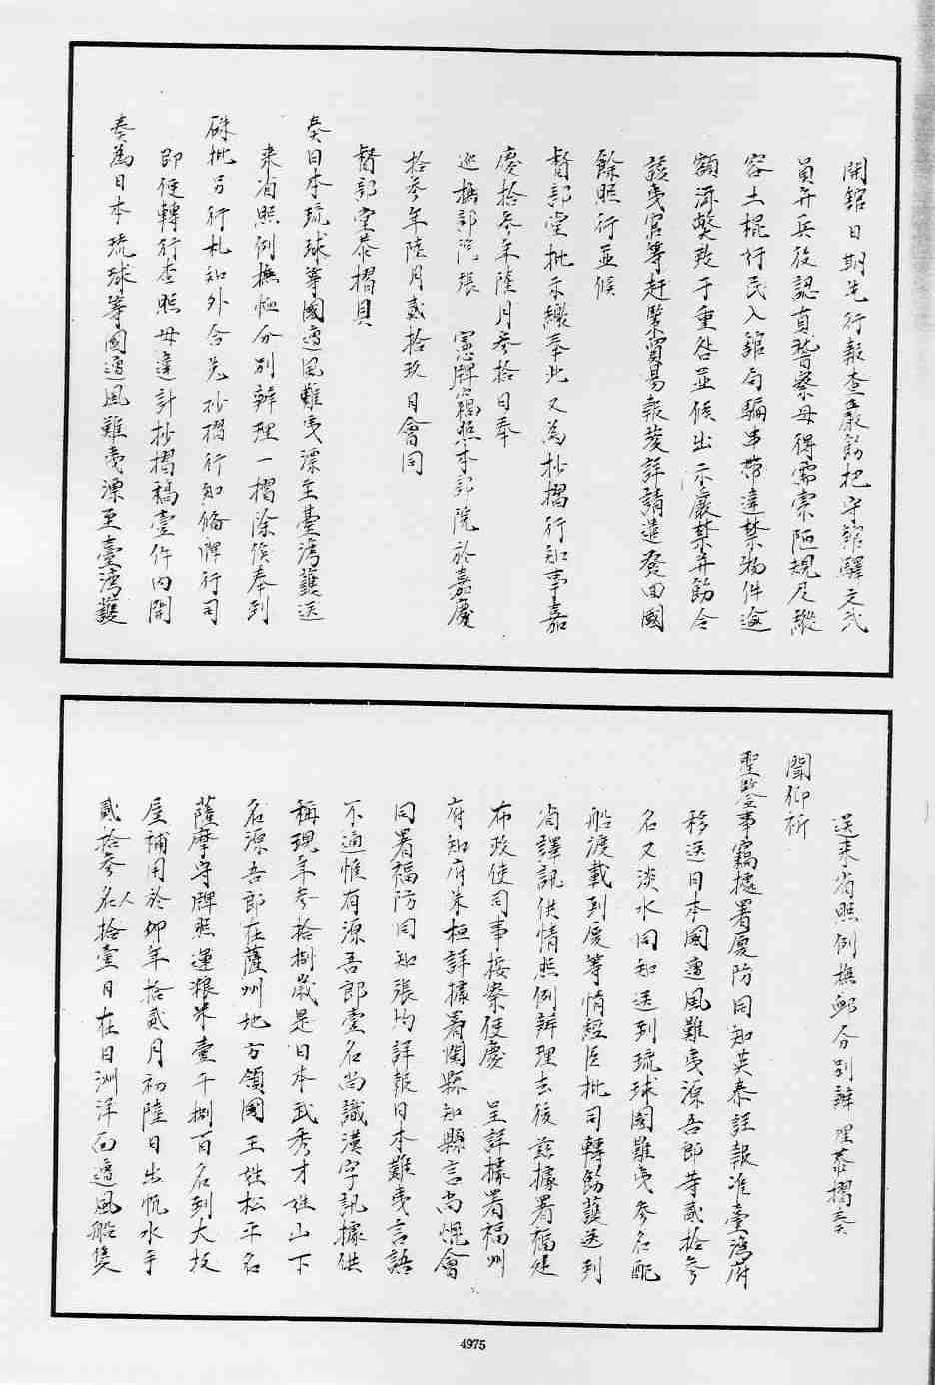 開館日期先行報查嚴飭把守館驛文武
員弁兵役認真稽察毋得需索陋規尺縱
容土棍奸民入館勾騙串帶違禁物件逾
額滋弊致于重咎並候出示嚴禁并飭令
該夷官等赶緊貿易報竣詳請遣發回國
餘照行並候
督部堂批示繳奉此又為抄摺行知事嘉
慶拾叁年陸月叁拾日奉
巡撫部院張 憲牌竊照本部院於嘉慶
拾叁年陸月貳拾玖日會同
督部堂恭摺具
奏日本琉球等國遭風難夷漂至臺灣護送
來省照例撫恤分別辦理一摺除俟奉到
硃批另行札知外合先抄摺行知偹牌行司
即便轉行查照毋違計抄摺稿壹件內開
奏為日本琉球等國遭風難夷漂至臺灣護
送來省照例撫卹分別辦理恭摺奏
聞仰祈
聖鑒事竊據署廈防同知英泰詳報准臺灣府
移送日本國遭風難夷源吾郎等貳拾叁
名又淡水同知送到琉球國難夷叁名配
船渡載到廈等情經臣批司轉飭護送到
省譯訊供情照例辦理去後玆據署福建
布政使司事按察使慶 呈詳據署福州
府知府朱桓詳據署閩縣知縣言尚焜會
同署福防同知張均詳報日本難夷言語
不通惟有源吾郎壹名尚識漢字訊據供
稱現年叁拾捌歲是日本武秀才姓山下
名源吾郎在薩州地方領國王姓松平名
薩摩守牌照運粮米壹千捌百名到大坂
屋補用於卯年拾貳月初陸日出帆水手
貳拾叁名人拾壹日在日洲洋面遭風船隻
4975